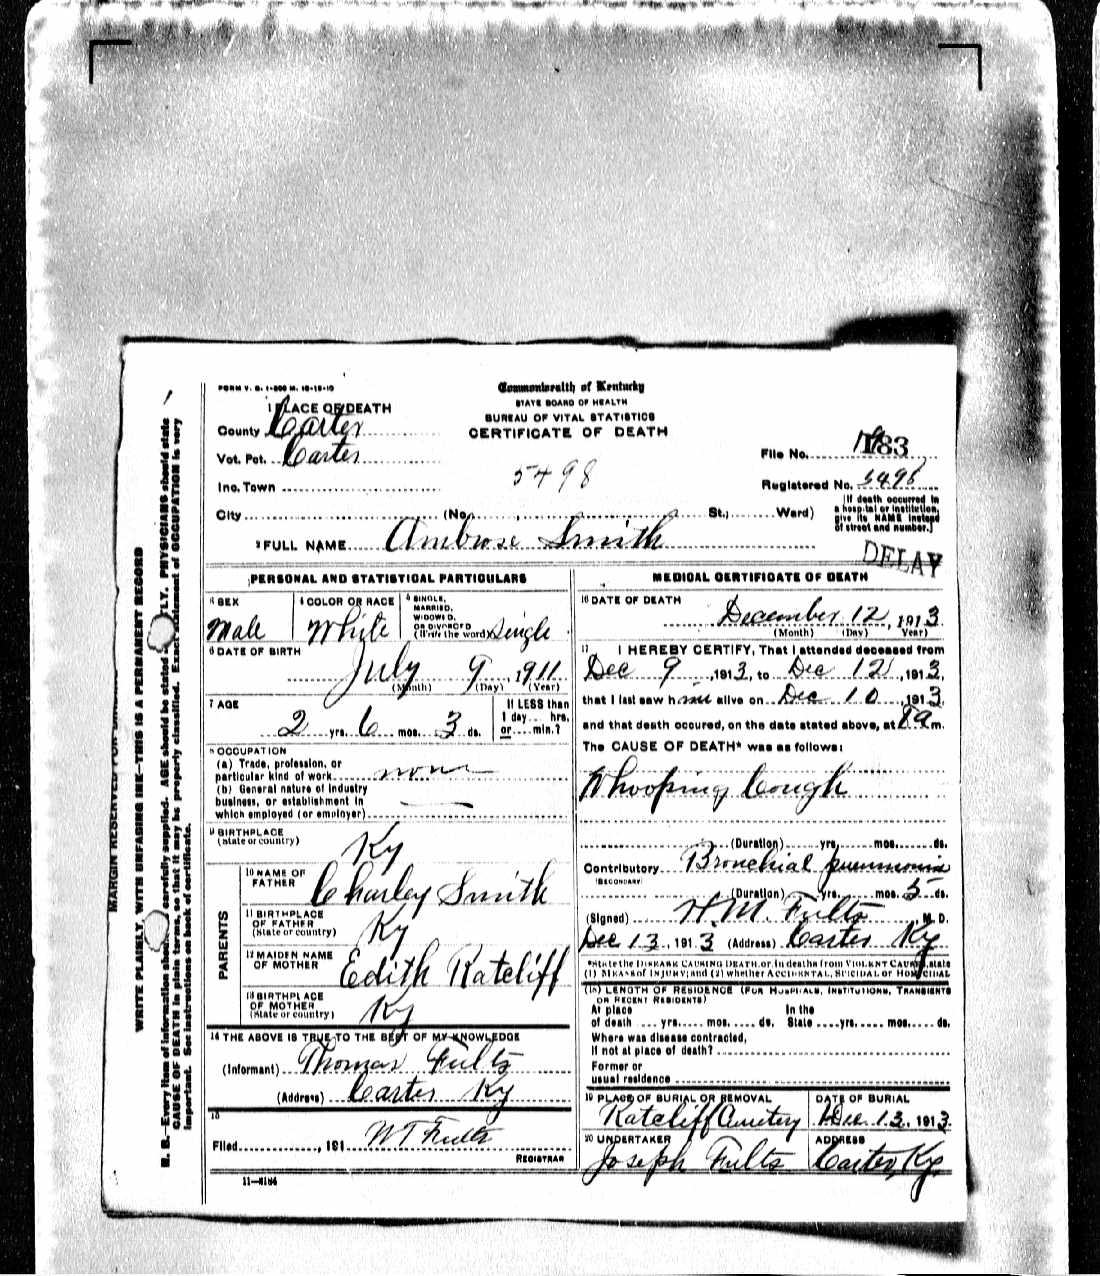 FORM V. S. 1-200 M. 10-18-10
Commonwealth of Kentucky
STATE BOARD OF HEALTH
BUREAU OF VITAL STATISTICS
CERTIFICATE OF DEATH
1 PLACE OF DEATH
County Carter
Vot. Pct. Carter
Inc. Town
City (No. , St.; Ward)
5498
File No. 183
Registered No. 5498
[If death occurred in a hospital or institution, give its NAME instead of street and number.]
2 FULL NAME Ambrose Smith
DELAY
PERSONAL AND STATISTICAL PARTICULARS
3 SEX
Male
4 COLOR OR RACE
White
5 SINGLE, MARRIED, WIDOWED, OR DIVORCED (Write the word) Single
6 DATE OF BIRTH
July 9, 1911
(Month) (Day) (Year)
7 AGE
2 yrs. 6 mos. 3 ds.
If LESS than 1 day... hrs. or.... min.?
8 OCCUPATION
(a) Trade, profession, or
particular kind of work none
(b) General nature of industry
business, or establishment in
which employed (or employer)
9 BIRTHPLACE
(State or country) Ky
PARENTS
10 NAME OF FATHER Charley Smith
11 BIRTHPLACE OF FATHER (State or country) Ky
12 MAIDEN NAME OF MOTHER Edith Ratcliff
13 BIRTHPLACE OF MOTHER (State or country) Ky
14 THE ABOVE IS TRUE TO THE BEST OF MY KNOWLEDGE
(Informant) Thomas Fults
(Address) Carter Ky
15
Filed , 191 W T Fults
REGISTRAR
11-3184
MEDICAL CERTIFICATE OF DEATH
16 DATE OF DEATH
December 12, 1913
(Month) (Day) Year)
17 I HEREBY CERTIFY, That I attended deceased from
Dec 9, 1913, to Dec 12, 1913,
that I last saw him alive on Dec 10, 1913
and that death occured, on the date stated above, at 8 a m.
The CAUSE OF DEATH* was as follows:
Whooping Cough
(Duration) yrs. mos. ds.
Contributory Bronchial pneumonia
(SECONDARY)
(Duration) yrs. mos. 5 ds.
(Signed) H M. Fults, M. D.
Dec 13, 1913 (Address) Carter Ky
*State the DISEASE CAUSING DEATH, or in deaths from VIOLENT CAUSES, state
(1) MEANS OF INJURY; and (2) whether ACCIDENTAL, SUICIDAL OR HOMICIDAL
(18) LENGTH OF RESIDENCE (FOR HOSPITALS, INSTITUTIONS, TRANSIENTS
OR RECENT RESIDENTS)
At place In the
of death .... yrs. mos. ds. State .... yrs. mos. ds.
Where was disease contracted,
If not at place of death?
Former or
usual residence
19 PLACE OF BURIAL OR REMOVAL
Ratcliff Cemetery
DATE OF BURIAL
Dec 13, 1913
20 UNDERTAKER
Joseph Fults
ADDRESS
Carter, Ky.
MARGIN RESERVED FOR
WRITE PLAINLY, WITH UNFADING INK—THIS IS A PERMANENT RECORD
N. B.—Every item of information should be carefully supplied. AGE should be stated EXACTLY. PHYSICIANS should state
CAUSE OF DEATH in plain terms, so that it may be properly classified. Exact statement of OCCUPATION is very
important. See instructions on back of certificate.